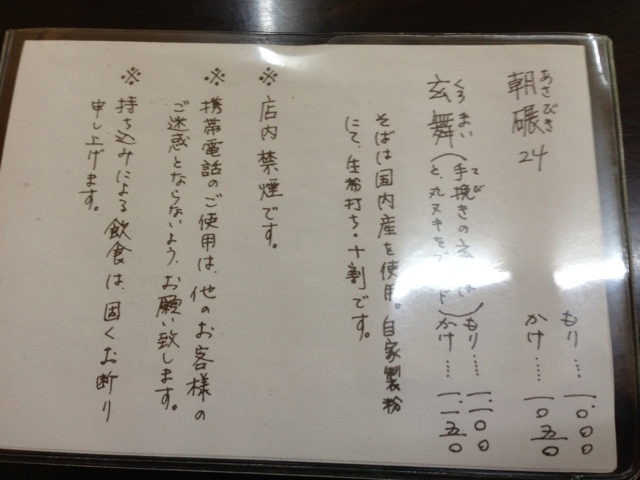 朝碾24
あさびき
もり……一、〇〇〇
かけ……一、〇五〇
玄舞(手挽きの玄
くろ まい
てび
と、丸ヌキをブ ド)
もり……一、一〇〇
かけ……一、一五〇
そばは国内産を使用。自家製粉
にて、生粉打ち・十割です。
※ 店内禁煙です。
※ 携帯電話のご使用は、他のお客様の
ご迷惑とならないよう、お願い致します。
※ 持ち込みによる飲食は、固くお断り
申し上げます。